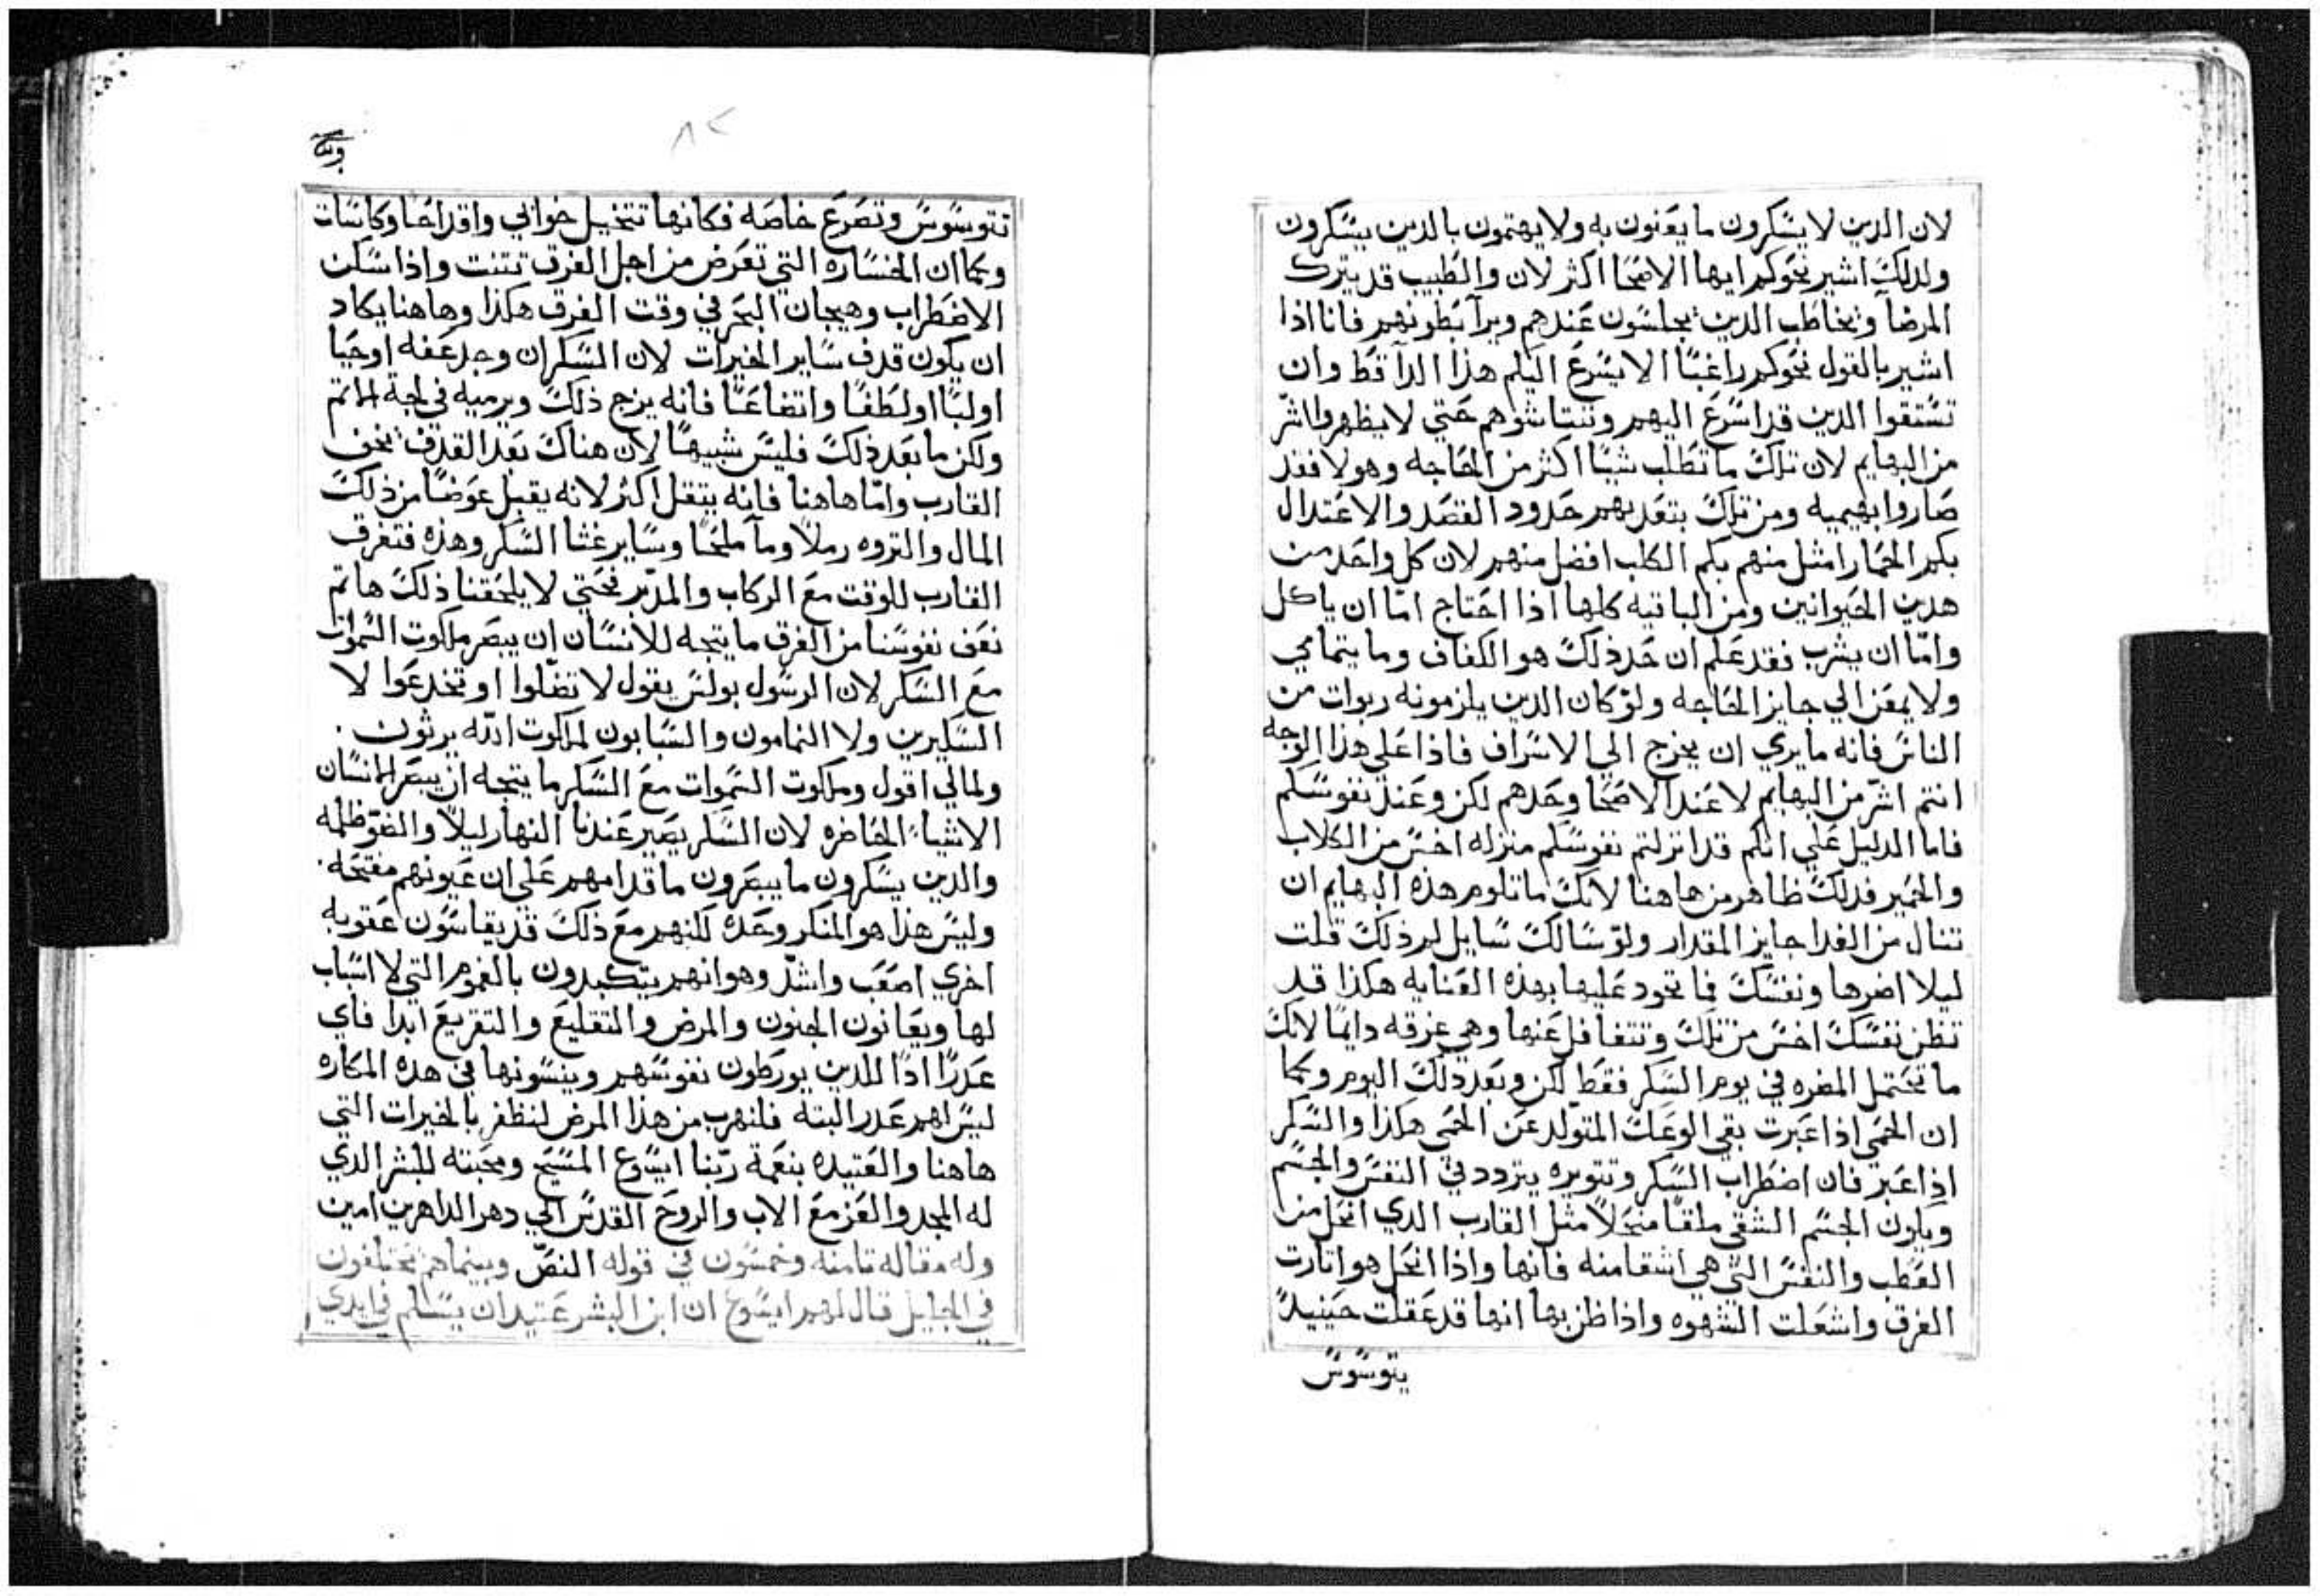 لان الدين لا يسكرون ما يعنون به ولا يهتمون بالدين يسكرون
ولدلك اشير نحوكم ايها الاصحا اكثر لان والطبيب قد يترك
المرضآ ويخاطب الدين يجلسون عندهم ويرآ بطونهم فانا اذا
اشير بالقول نحوكم راغبًا الا يسرع اليكم هذا الدآ قط وان
تستقوا الدين قد اسرع اليهم وتنتاشوهم حتي لا يظهروا اشر
من البهايم لان تلك ما تطلب شيًا اكثر من الحاجه وهولا فقد
صاروا بهيميه ومن تلك بتعديهم حدود القصد والاعتدال
بكم الحمار امثل منهم بكم الكلب افضل منهم لان كل واحد من
هدين الحيوانين ومن الباقيه كلها اذا احتاج امّا ان ياكل
وامّا ان يشرب فقد علم ان حد ذلك هو الكفاف وما يتمامي
ولا يمعن الي جايز الحاجه ولو كان الدين يلزمونه ربوات من
الناس فانه ما يري ان يخرج الي الاسراف فاذا علي هذا الوجه
انتم اشرّ من البهايم لا عند الاصحا وحدهم لكن وعند نفوسكم
فاما الدليل علي انكم قد انزلتم نفوسكم منزله اخسّ من الكلاب
والحمير فدلك ظاهر من هاهنا لانك ما تلوم هذه البهايم ان
تنال من الغدا جايز المقدار ولو سالك سايل لم ذلك قلت
ليلا اضرها ونفسك فما تجود عليها بهذه العنايه هكذا قد
تظن نفسك اخس من تلك وتتغافل عنها وهي غرقه دايمًا لانك
ما تحتمل المضره في يوم السكر فقط لكن وبعد ذلك اليوم وكما
ان الحمي اذا عبرت بقي الوعك المتولد عن الحمي هكذا والسكر
اذا عبر فان اضطراب السكر وتتويره يتردد في النفس والجسم
ويكون الجسم الشقي ملقًا منحلاً مثل القارب الدي انحل من
العطب والنفس التي هي اشقا منه فانها واذا انحل هو اتارت
الغرق واشعلت الشهوه واذا ظن بها انها قد عقلت حينيدً
يتوسوس
تتوسوس وتصرع خاصه فكانها تتخيل خوابي واقداحًا وكاسات
وكما ان الخساره التي تعرض من اجل الغرق تتبت واذا سكن
الاضطراب وهيجان البحر في وقت الغرق هكذا وهاهنا يكاد
ان يكون قدف ساير الخيرات لان السكران وجد عفه اوحيا
اولبًا اولطفًا واتضاعًا فانه يزج ذلك ويرميه في لجة الاثم
ولكن ما بعد ذلك فليس شبيهًا لان هناك بعد القدف يخف
القارب وامّا هاهنا فانه يتقل اكثر لانه يقبل عوضًا من ذلك
المال والتروه رملاً ومآ ملحًا وساير غثا السكر وهذه فتغرق
القارب للوقت مع الركاب والمدبر فحتي لا يلحقنا ذلك هاتم
نعف نفوسنا من الغرق ما يتجه للانسان ان يبصر ملكوت السموات
مع السكر لان الرسول بولس يقول لا تضلوا او تخدعوا لا
السكيرين ولا النمامون والسابون لملكوت الله يرثون.
ولمالي اقول وملكوت السموات مع السكر ما يتجه ان يبصر الانسان
الاشياء الحاضره لان السكر يصير عندنا النهار ليلاً والضوّ ظلمه
والدين يسكرون ما يبصرون ما قدامهم علي ان عيونهم مفتحه.
وليس هذا هو المنكر وحده لكنهم مع ذلك قد يقاسون عقوبه
اخري اصعب واشدّ وهو انهم يتكبدون بالغموم التي لا اسباب
لها ويعانون الجنون والمرض والتقليع والتقريع ابدا فاي
عدرًا ادًا للدين يورطون نفوسهم وينسونها في هده المكاره
ليس لهم عدر البته فلنهرب من هذا المرض لنظفر بالخيرات التي
هاهنا والعتيده بنعمة ربّنا ايسوع المسيح ومحبته للبشر الدي
له المجد والعز مع الاب والروح القدس الي دهر الداهرين امين
وله مقاله تامنه وخمسون في قوله النصّ وبينما هم يختلفون
في الجليل قال لهم ايسوع ان ابن البشر عتيد ان يسلم في ايدي